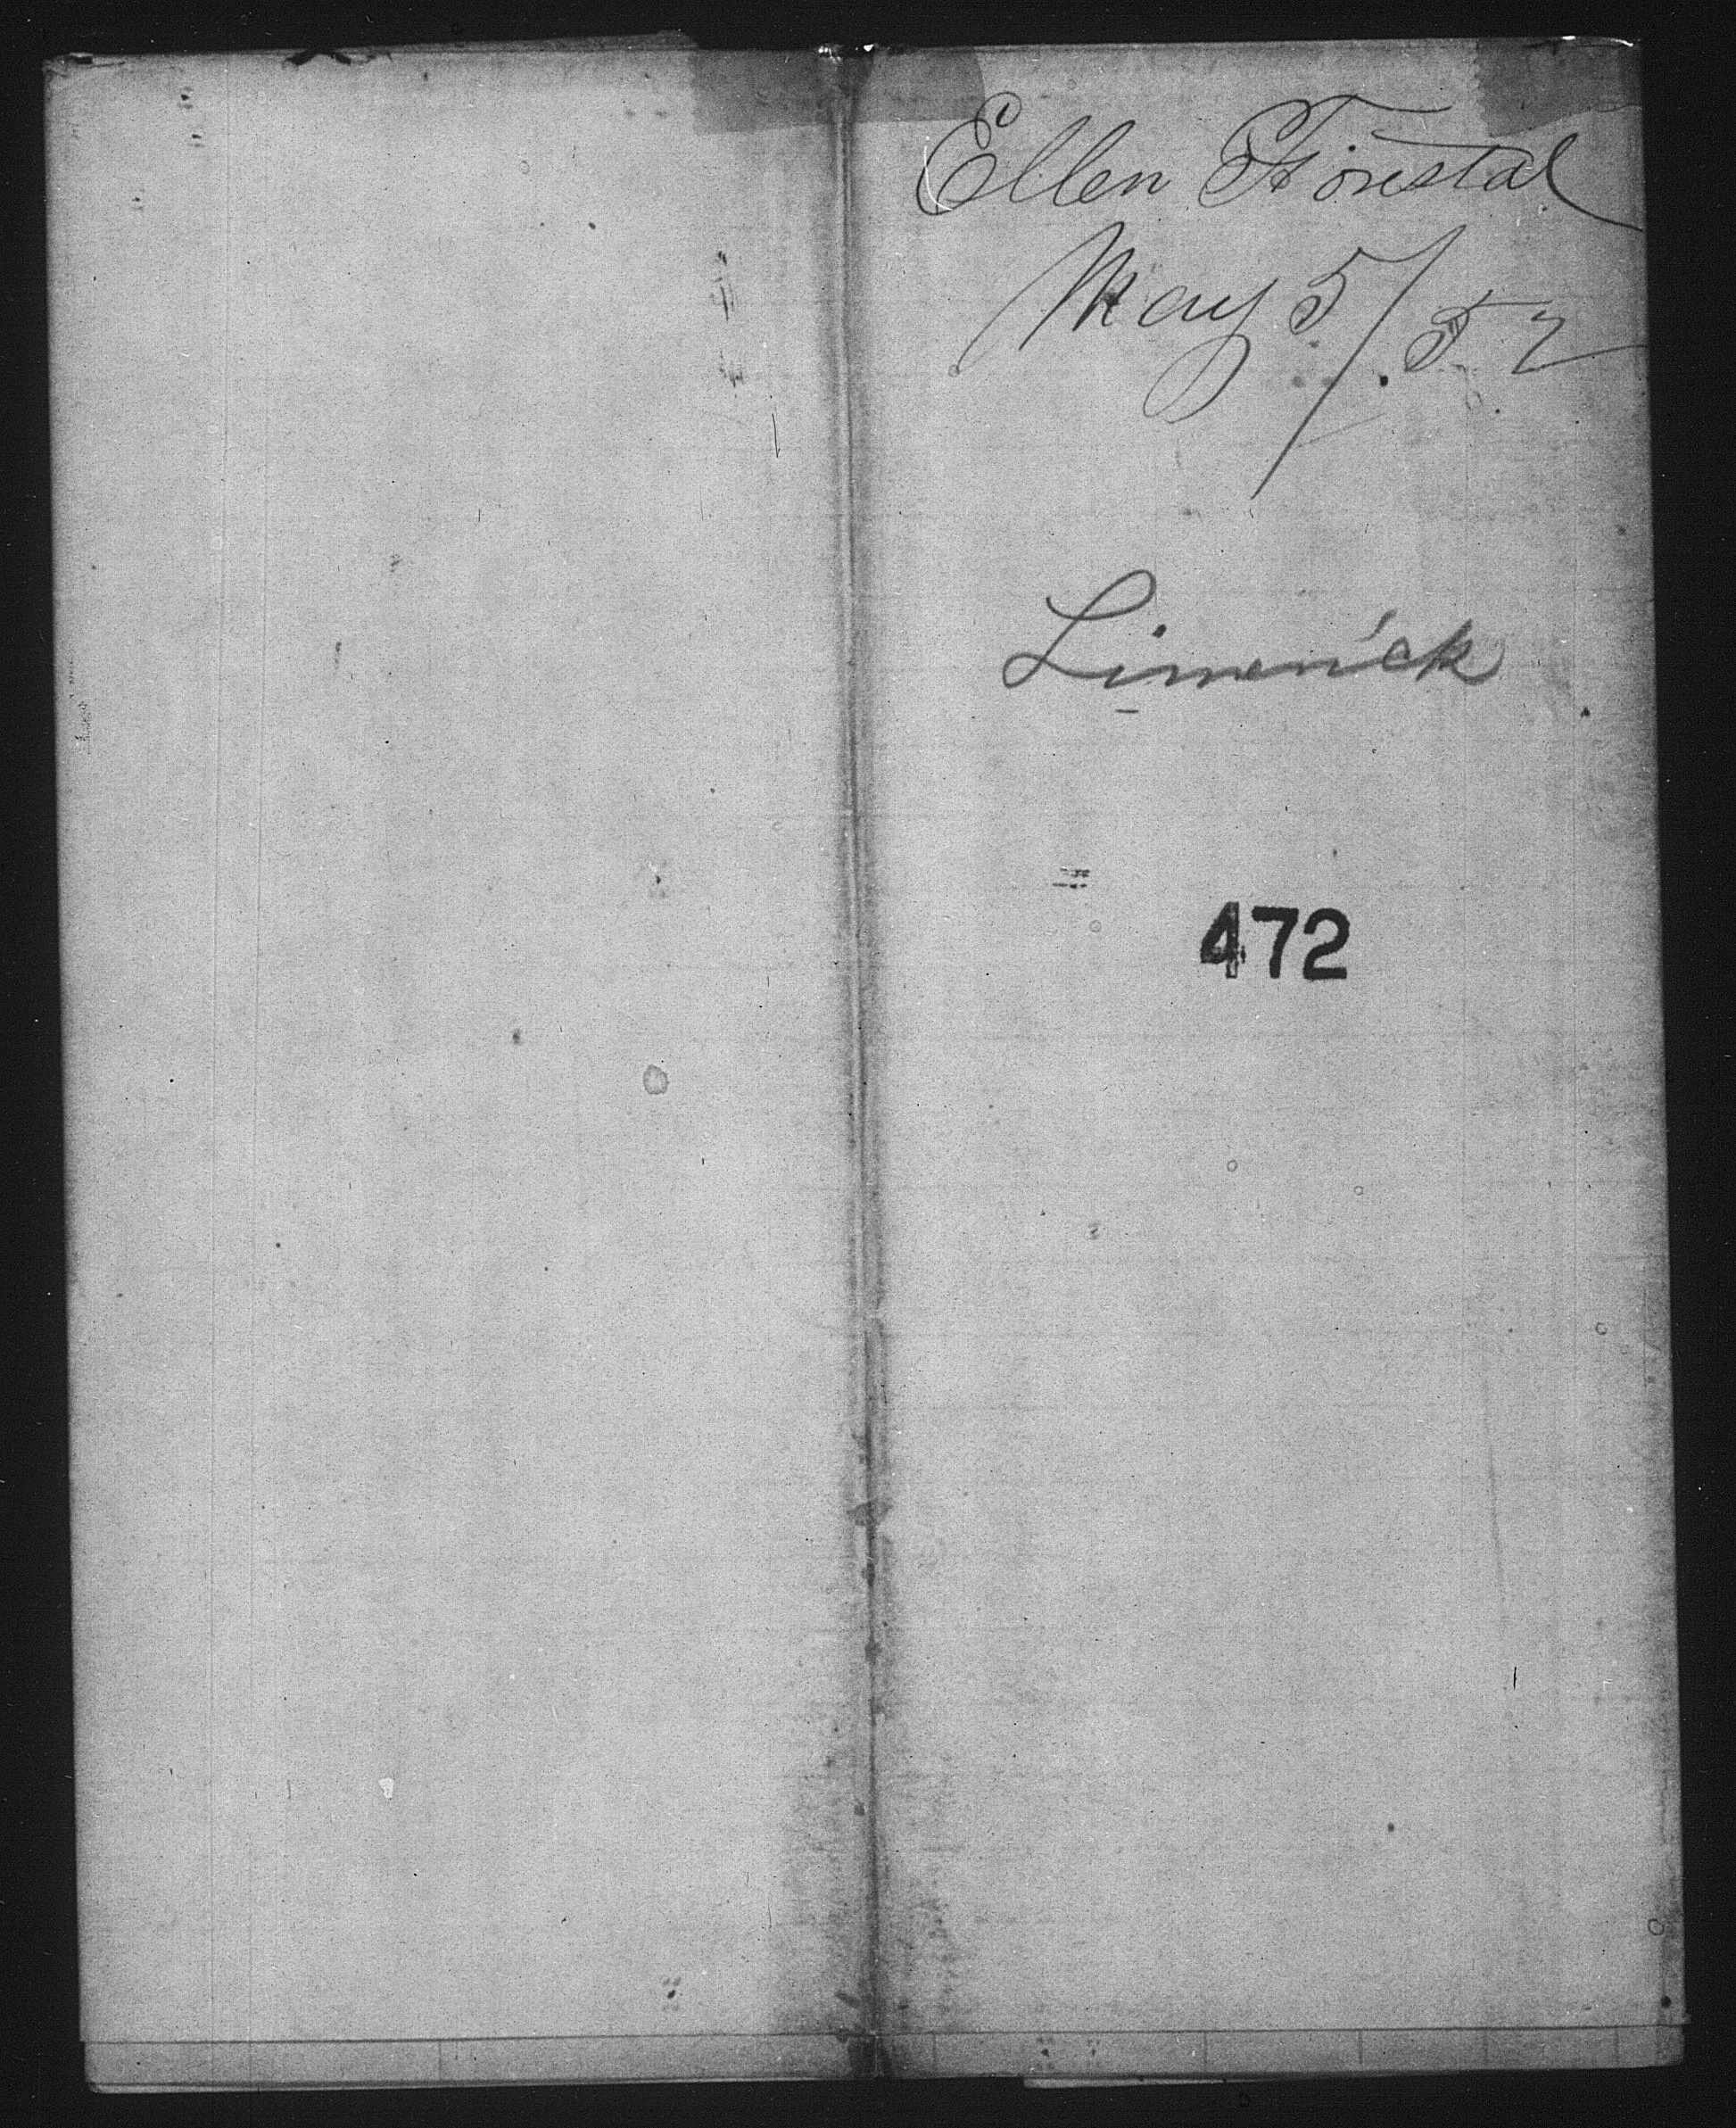 Ellen Forestal
May 5/52
Limerick
472